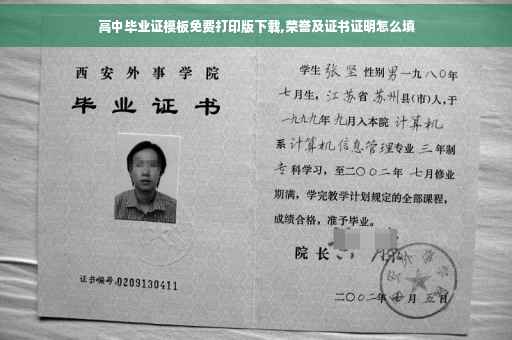 高中毕业证模板免费打印版下载,荣誉及证书证明怎么填
西安外事学院
毕业证书
证书编号:0209130411
学生 张坚 性别 男 一九八〇年
七月生,江苏省 苏州县(市)人,于
一九九九年 九月入本院 计算机
系 计算机信息管理专业 三 年制
专科学习,至二〇〇二年 七月修业
期满,学完教学计划规定的全部课程,
成绩合格,准予毕业。
院长
二〇〇二年 七月 五日